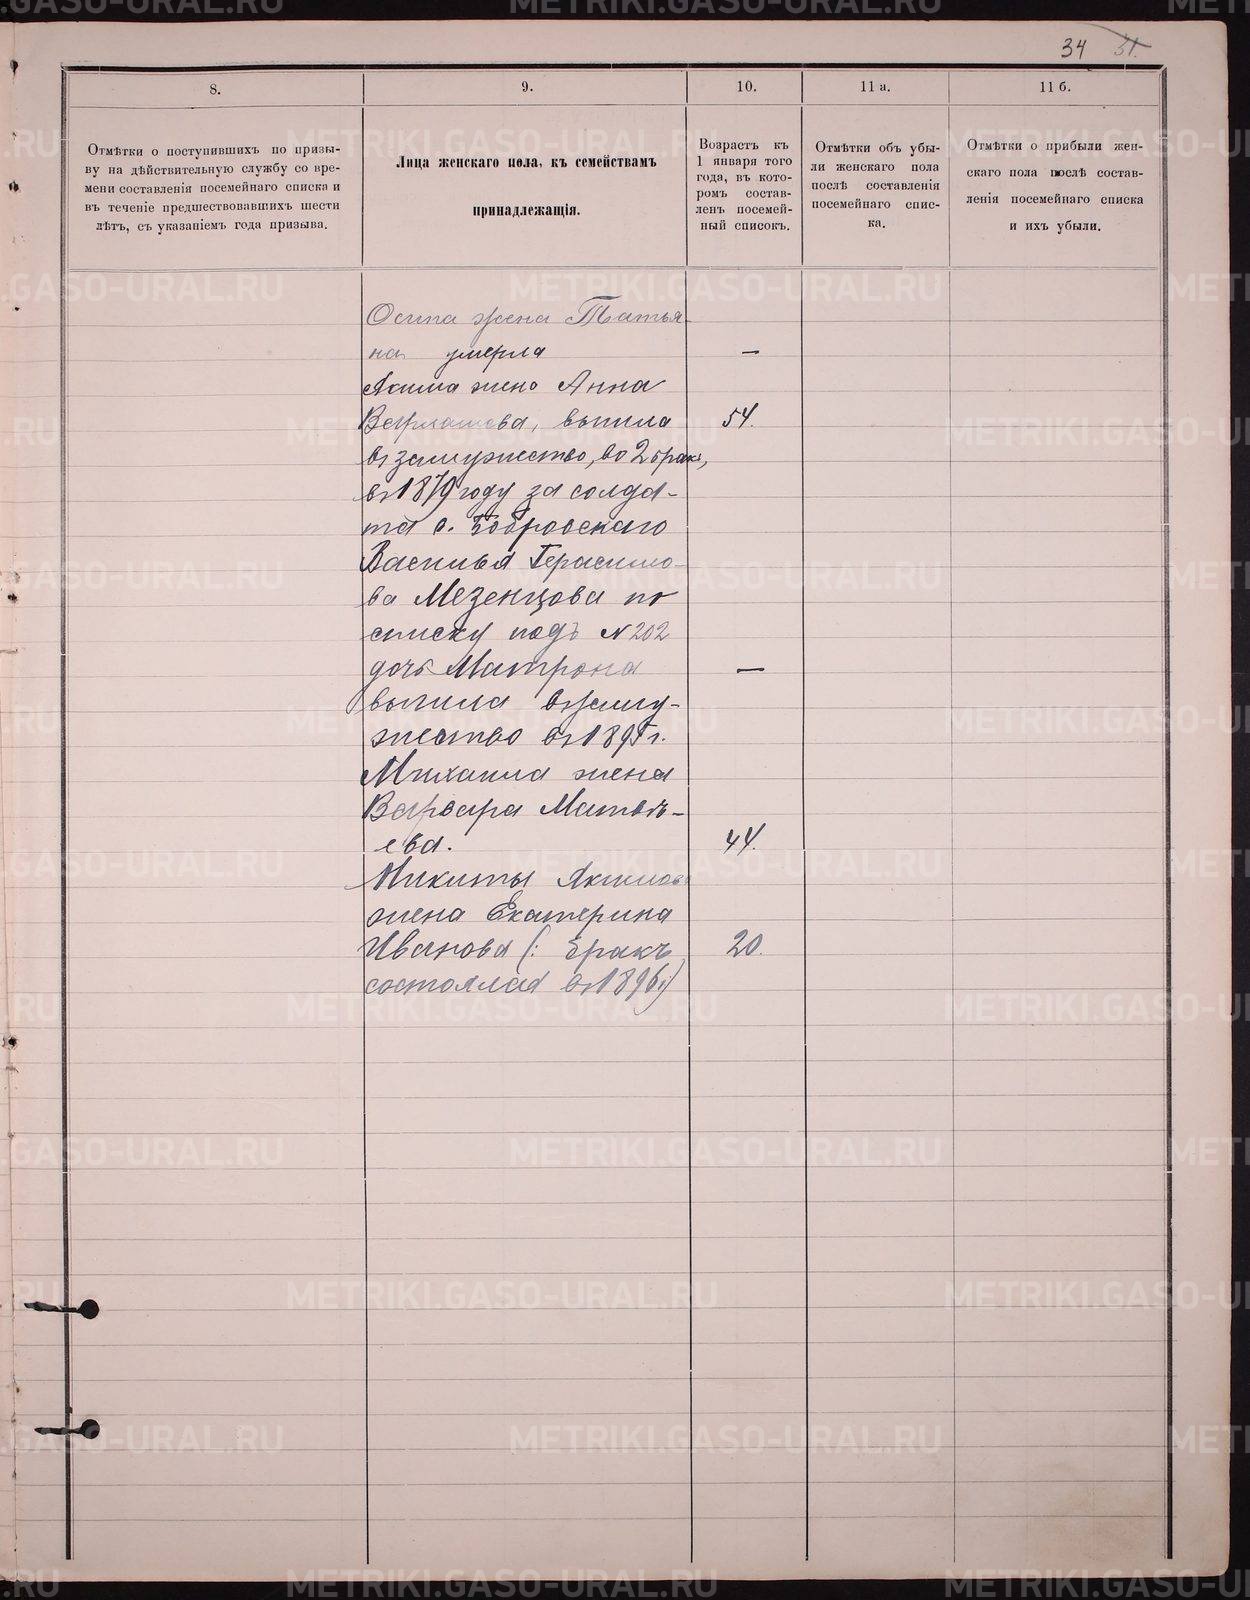 34 31.
8.
9.
10.
11 а.
11 б.
Отмѣтки о поступившихъ по призы-
ву на дѣйствительную службу со вре-
мени составленія посемейнаго списка и
въ теченіе предшествовавшихъ шести
лѣтъ, съ указаніемъ года призыва.
Лица женскаго пола, къ семействамъ
принадлежащія.
Возрастъ къ
1 января того
года, въ кото-
ромъ состав-
ленъ посемей-
ный списокъ.
Отмѣтки объ убы-
ли женскаго пола
послѣ составленія
посемейнаго спис-
ка.
Отмѣтки о прибыли жен-
скаго пола послѣ состав-
ленія посемейнаго списка
и ихъ убыли.
Осипа жена Татья-
на умерла —
Акима жена Анна
Варламова, вышла 54.
въ замужество, во 2 бракъ,
въ 1879 году за солда-
та с. Бобровскаго
Василья Герасимо-
ва Мезенцова по
списку подъ № 202
дочь Матрона —
вышла въ заму-
жество въ 189 г.
Михаила жена
Варвара Матвѣ-
ева. 44.
Никиты Акимова
жена Екатерина
Иванова (: бракъ 20.
состоялся въ 1896 г.)
METRIKI.GASO-URAL.RU